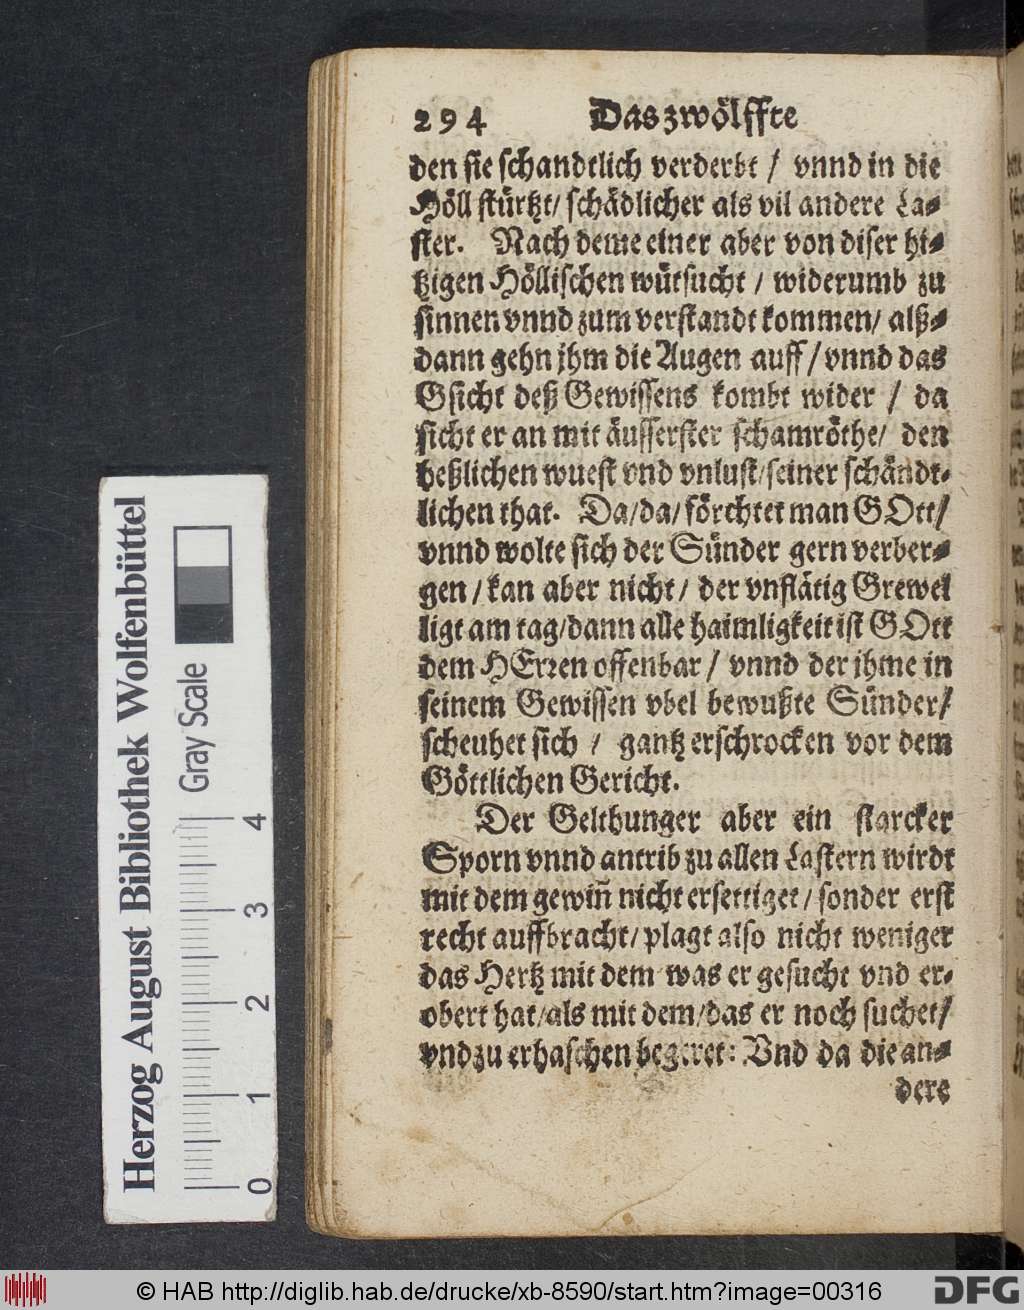 294 Das zwölffte
den sie schandtlich verderbt / vnnd in die
Höll stürtzt / schädlicher als vil andere La⸗
ster. Nach deme einer aber von diser hi⸗
tzigen Höllischen wütsucht / widerumb zu
sinnen vnnd zum verstandt kommen / alß⸗
dann gehn jhm die Augen auff / vnnd das
Gsicht deß Gewissens kombt wider / da
sicht er an mit äusserster schamröthe / den
heßlichen wuest vnd vnlust / seiner schändt⸗
lichen that. Da / da / förchtet man GOtt /
vnnd wolte sich der Sünder gern verber⸗
gen / kan aber nicht / der vnflätig Grewel
ligt am tag / dann alle haimligkeit ist GOtt
dem HErren offenbar / vnnd der jhme in
seinem Gewissen vbel bewußte Sünder /
scheuhet sich / gantz erschrocken vor dem
Göttlichen Gericht.
Der Gelthunger aber ein starcker
Sporn vnnd antrib zu allen Lastern wirdt
mit dem gewiñ nicht ersettiget / sonder erst
recht auffbracht / plagt also nicht weniger
das Hertz mit dem was er gesucht vnd er⸗
obert hat / als mit dem / das er noch suchet /
vnd zu erhaschen begeret: Vnd da die an⸗
dere
Herzog August Bibliothek Wolfenbüttel
Gray Scale
0 1 2 3 4
© HAB http://diglib.hab.de/drucke/xb-8590/start.htm?image=00316
DFG